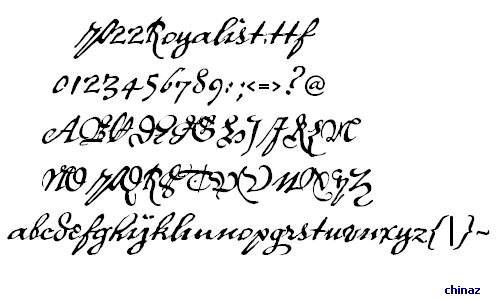 1722Royalist.ttf
0123456789:;<=>?@
ABCDEFGHIJKLM
NOPQRSTUVWXYZ
abcdefghijklmnopqrstuvwxyz{|}~
chinaz